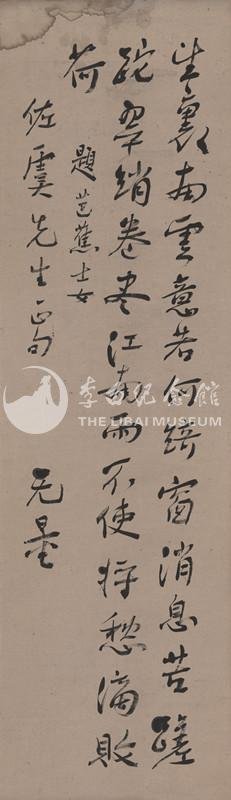 望裏南雲意若何綺窗消息苦蹉
跎翠綃卷盡江南雨不使将愁滴敗
荷
題芭蕉士女
佐虞先生正句
无量
李白纪念館
THE LIBAI MUSEUM